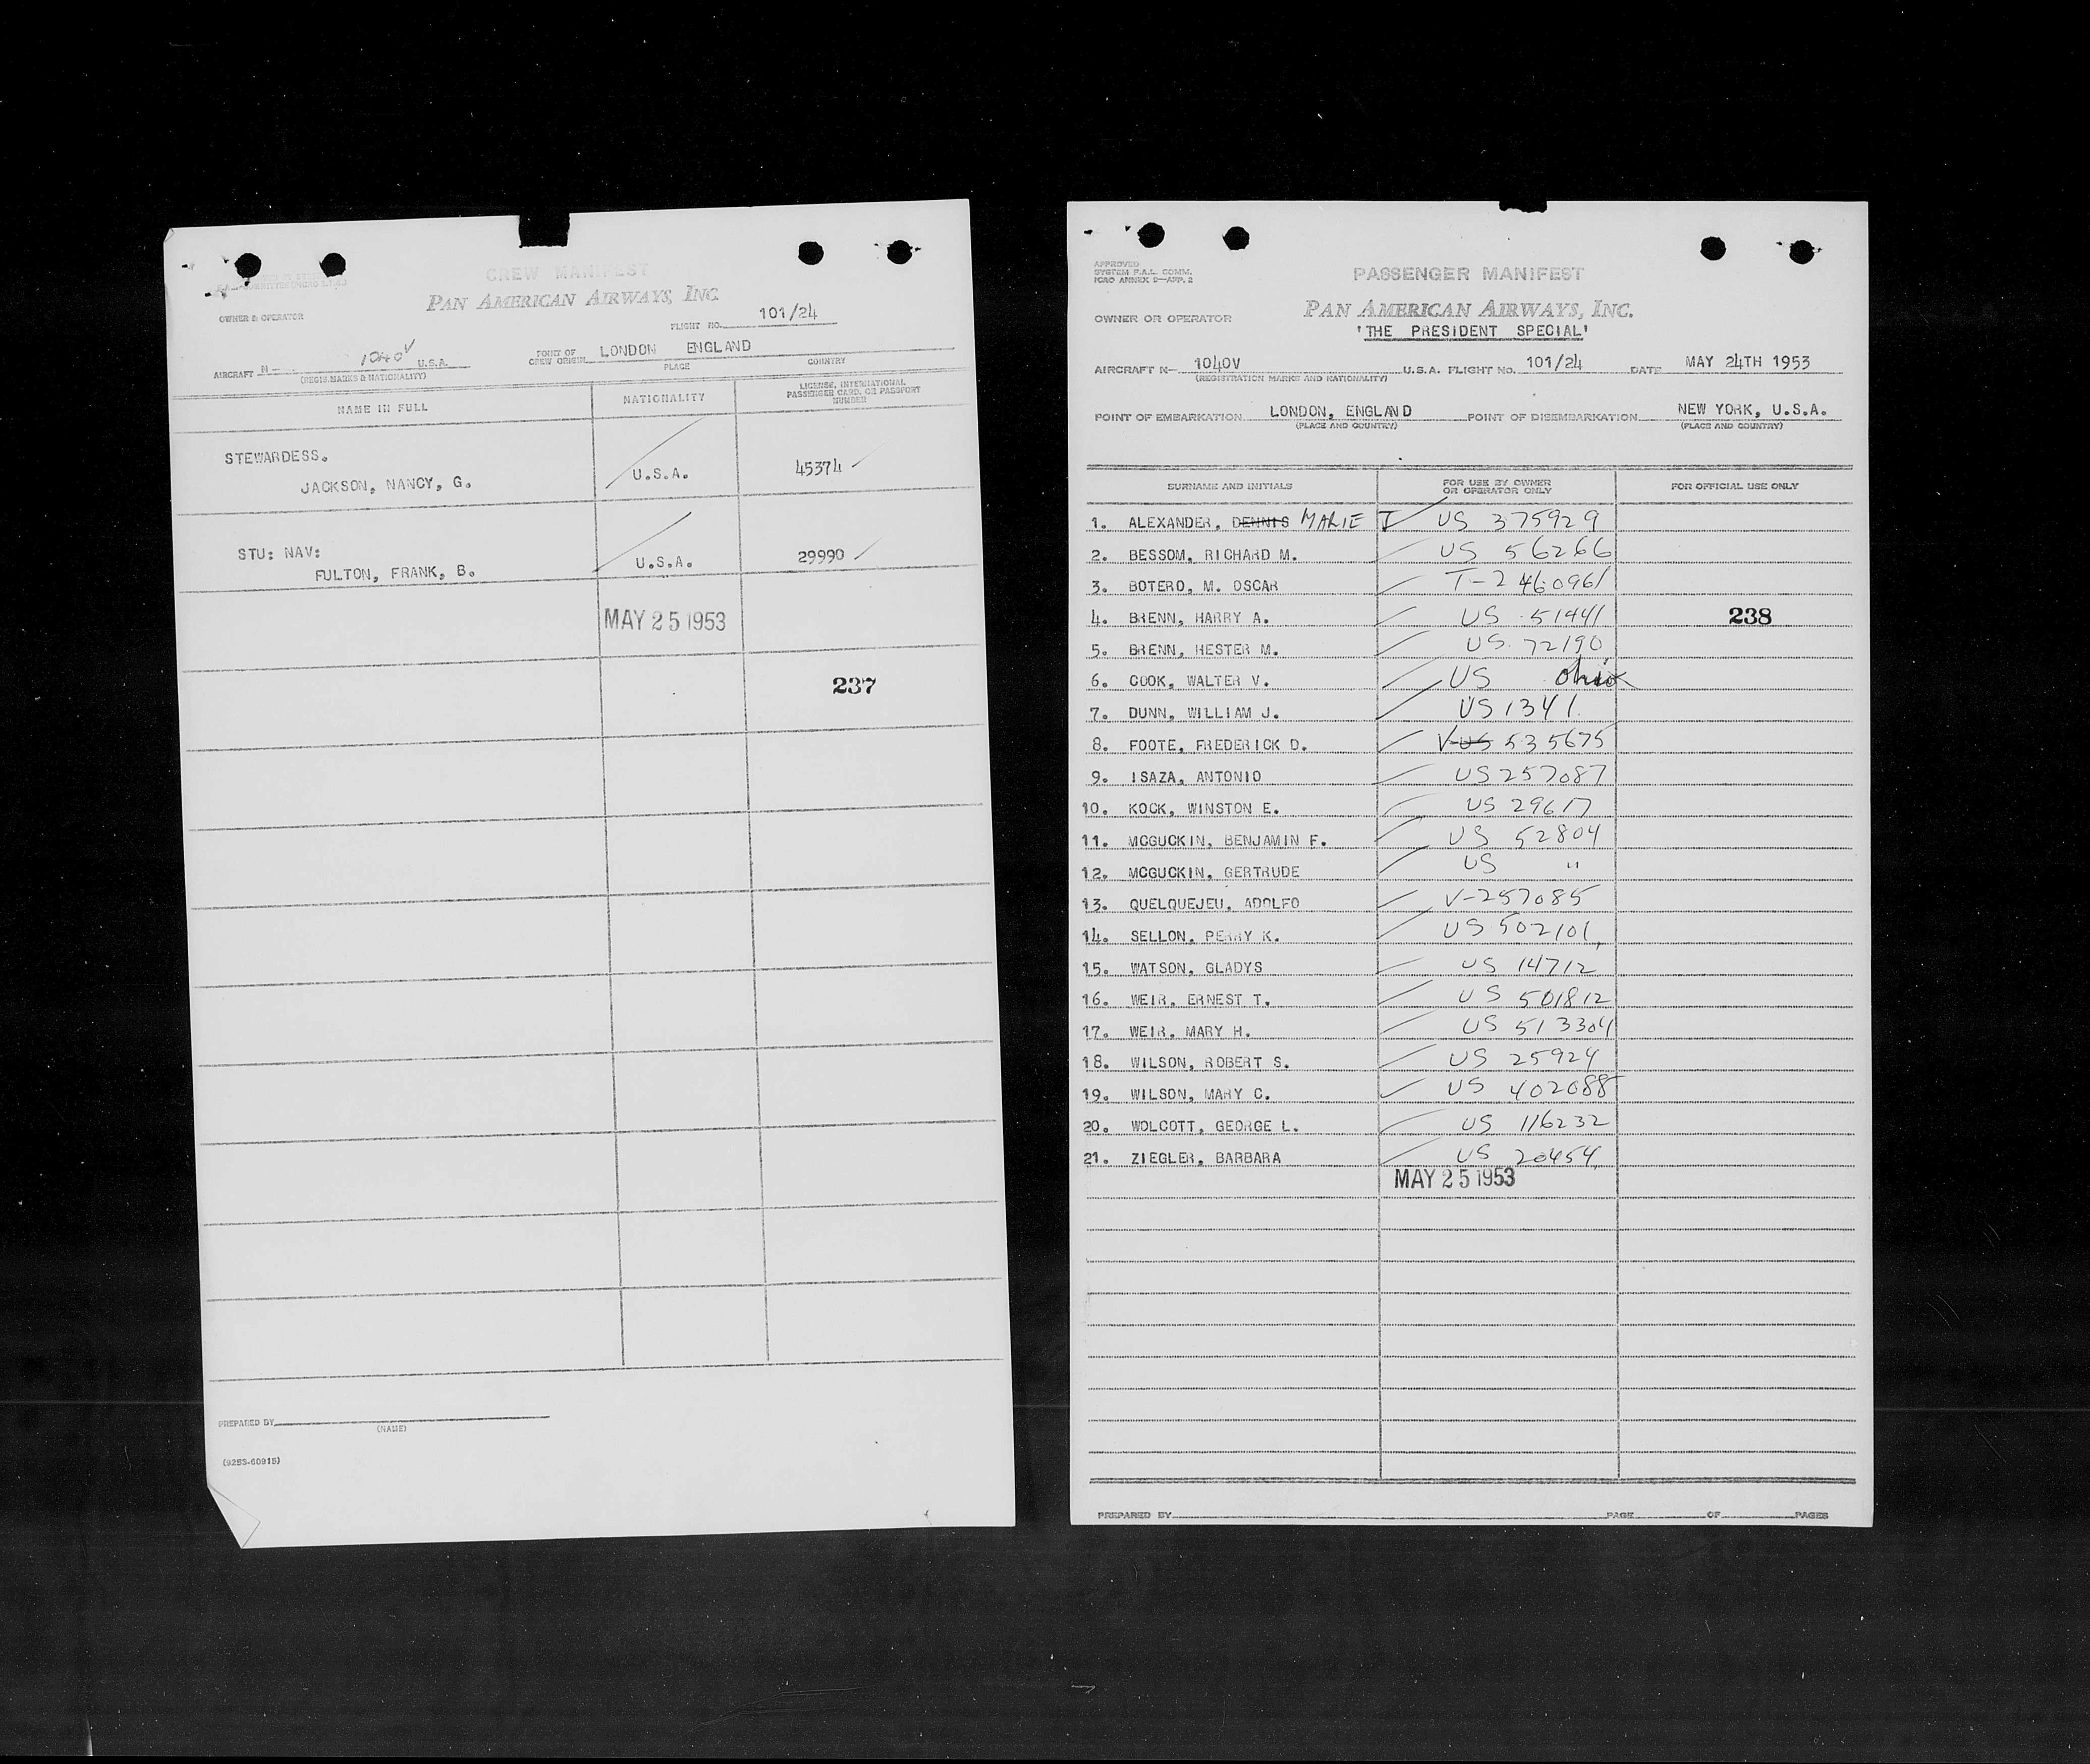 CREW MANIFEST
PAN AMERICAN AIRWAYS, INC.
OWNER & OPERATOR
FLIGHT NO. 101/24
AIRCRAFT N- 1040V U.S.A.
(REGIS. MARKS & NATIONALITY)
POINT OF CREW ORIGIN LONDON ENGLAND
PLACE COUNTRY
NAME IN FULL NATIONALITY LICENSE, INTERNATIONAL PASSENGER CARD, OR PASSPORT NUMBER
STEWARDESS.
JACKSON, NANCY, G. U.S.A. 45374
STU: NAV:
FULTON, FRANK, B. U.S.A. 29990
MAY 25 1953
237
PREPARED BY
(NAME)
(925S-60915)
APPROVED
SYSTEM F.A.L. COMM.
ICAO ANNEX 9-APP. 2
PASSENGER MANIFEST
PAN AMERICAN AIRWAYS, INC.
OWNER OR OPERATOR
'THE PRESIDENT SPECIAL'
AIRCRAFT N- 1040V U.S.A. FLIGHT NO. 101/24 DATE MAY 24TH 1953
(REGISTRATION MARKS AND NATIONALITY)
POINT OF EMBARKATION LONDON, ENGLAND POINT OF DISEMBARKATION NEW YORK, U.S.A.
(PLACE AND COUNTRY) (PLACE AND COUNTRY)
SURNAME AND INITIALS FOR USE BY OWNER OR OPERATOR ONLY FOR OFFICIAL USE ONLY
1. ALEXANDER, DENNIS MARIE I US 375929
2. BESSOM, RICHARD M. US 56266
3. BOTERO, M. OSCAR T-2460961
4. BRENN, HARRY A. US 51441 238
5. BRENN, HESTER M. US 72190
6. COOK, WALTER V. US Ohio
7. DUNN, WILLIAM J. US 1341
8. FOOTE, FREDERICK D. V-US 535675
9. ISAZA, ANTONIO US 257087
10. KOCK, WINSTON E. US 29617
11. MCGUCKIN, BENJAMIN F. US 52804
12. MCGUCKIN, GERTRUDE US "
13. QUELQUEJEU, ADOLFO V-257085
14. SELLON, PERRY K. US 502101
15. WATSON, GLADYS US 14712
16. WEIR, ERNEST T. US 501812
17. WEIR, MARY H. US 513304
18. WILSON, ROBERT S. US 25924
19. WILSON, MARY C. US 402088
20. WOLCOTT, GEORGE L. US 116232
21. ZIEGLER, BARBARA US 20454
MAY 25 1953
PREPARED BY PAGE OF PAGES